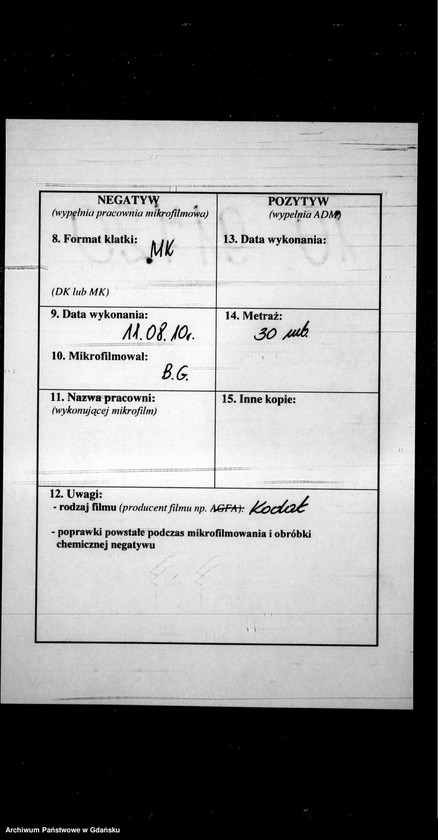 NEGATYW
(wypełnia pracownia mikrofilmowa)
8. Format klatki: MK
(DK lub MK)
9. Data wykonania:
11.08.10r.
10. Mikrofilmował:
B.G.
11. Nazwa pracowni:
(wykonującej mikrofilm)
POZYTYW
(wypełnia ADM)
13. Data wykonania:
14. Metraż:
30 mb.
15. Inne kopie:
12. Uwagi:
- rodzaj filmu (producent filmu np. AGFA): Kodak
- poprawki powstałe podczas mikrofilmowania i obróbki
chemicznej negatywu
Archiwum Państwowe w Gdańsku